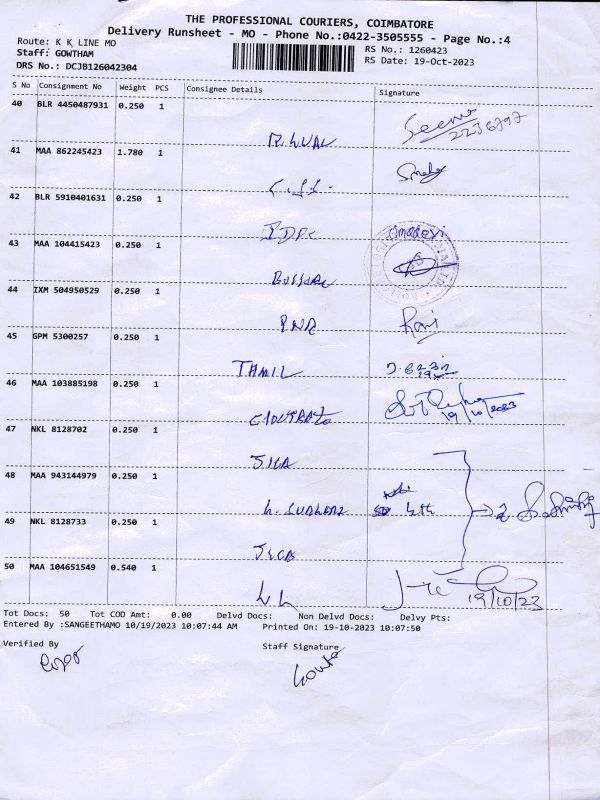 THE PROFESSIONAL COURIERS, COIMBATORE
Delivery Runsheet - MO - Phone No.:0422-3505555 - Page No.:4
Route: K K LINE MO
RS No.: 1260423
Staff: GOWTHAM
RS Date: 19-Oct-2023
DRS No.: DCJB126042304
S No Consignment No Weight PCS Consignee Details Signature
40 BLR 4450487931 0.250 1
Seema
2236797
41 MAA 862245423 1.780 1
42 BLR 5910401631 0.250 1
43 MAA 104415423 0.250 1
44 IXM 504950529 0.250 1
PNR Rani
45 GPM 5300257 0.250 1
THAMIL
46 MAA 103885198 0.250 1
19/10/2023
47 NKL 8128702 0.250 1
48 MAA 943144979 0.250 1
49 NKL 8128733 0.250 1
50 MAA 104651549 0.540 1
19/10/23
Tot Docs: 50 Tot COD Amt: 0.00 Delvd Docs: Non Delvd Docs: Delvy Pts:
Entered By :SANGEETHAMO 10/19/2023 10:07:44 AM Printed On: 19-10-2023 10:07:50
Verified By Staff Signature